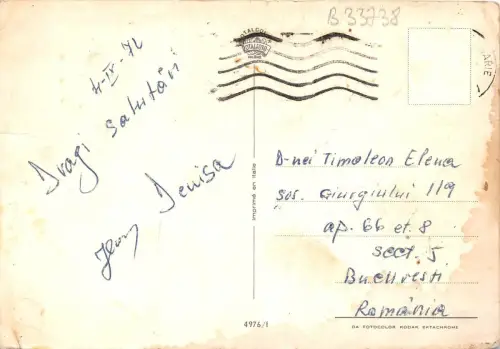 B 33738
4-IV-72
Dragi salutări
Denisa
imprimé en Italie
D-nei Timoleon Elena
sos. Giurgiului 119
ap. 66 et. 8
sect. 5
Bucuresti
România
4976/1
DA FOTOCOLOR KODAK EKTACHROME